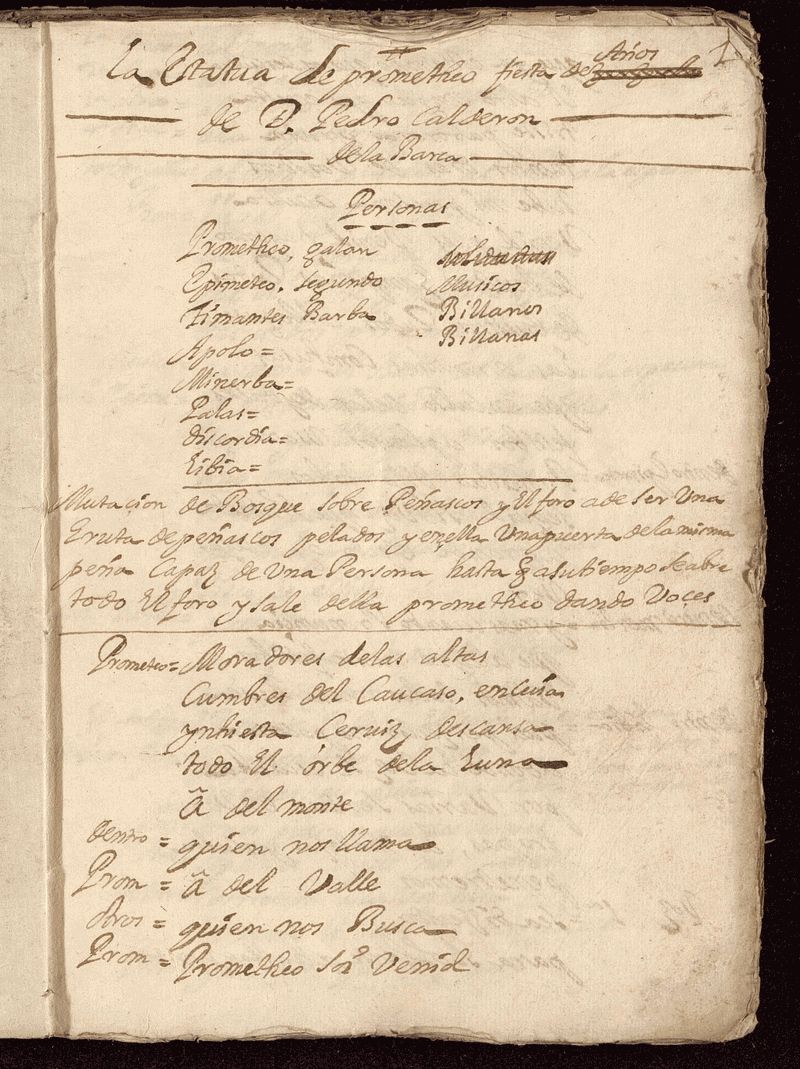 1
La Estatua de prometheo fiesta de Años
de D. Pedro Calderon
de la Barca
Personas
Prometheo, galan
Epimeteo, segundo
Timantes Barba
Apolo =
Minerba =
Palas =
discordia =
Libia =
Musicos
Billanos
Billanas
Mutacion de Bosque sobre Peñascos y El foro a de ser Una
Gruta de peñascos pelados y en ella Una puerta de la misma
peña Capaz de Una Persona hasta q a su tiempo se abre
todo El foro y sale della prometheo dando Voçes
Prometeo = Moradores de las altas
Cumbres del Caucaso, en Cuia
ynhiesta Ceruiz descansa
todo El órbe de la Luna
â del monte
dentro = quien nos llama
Prom = â del Valle
otros = quien nos Busca
Prom = Prometheo soi Venid